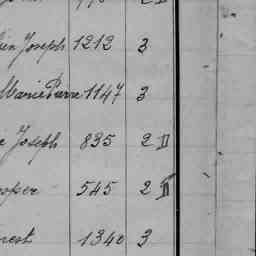 Joseph 1212 3
Marie Pierre 1147 3
Joseph 835 2 II
545 2
1340 3